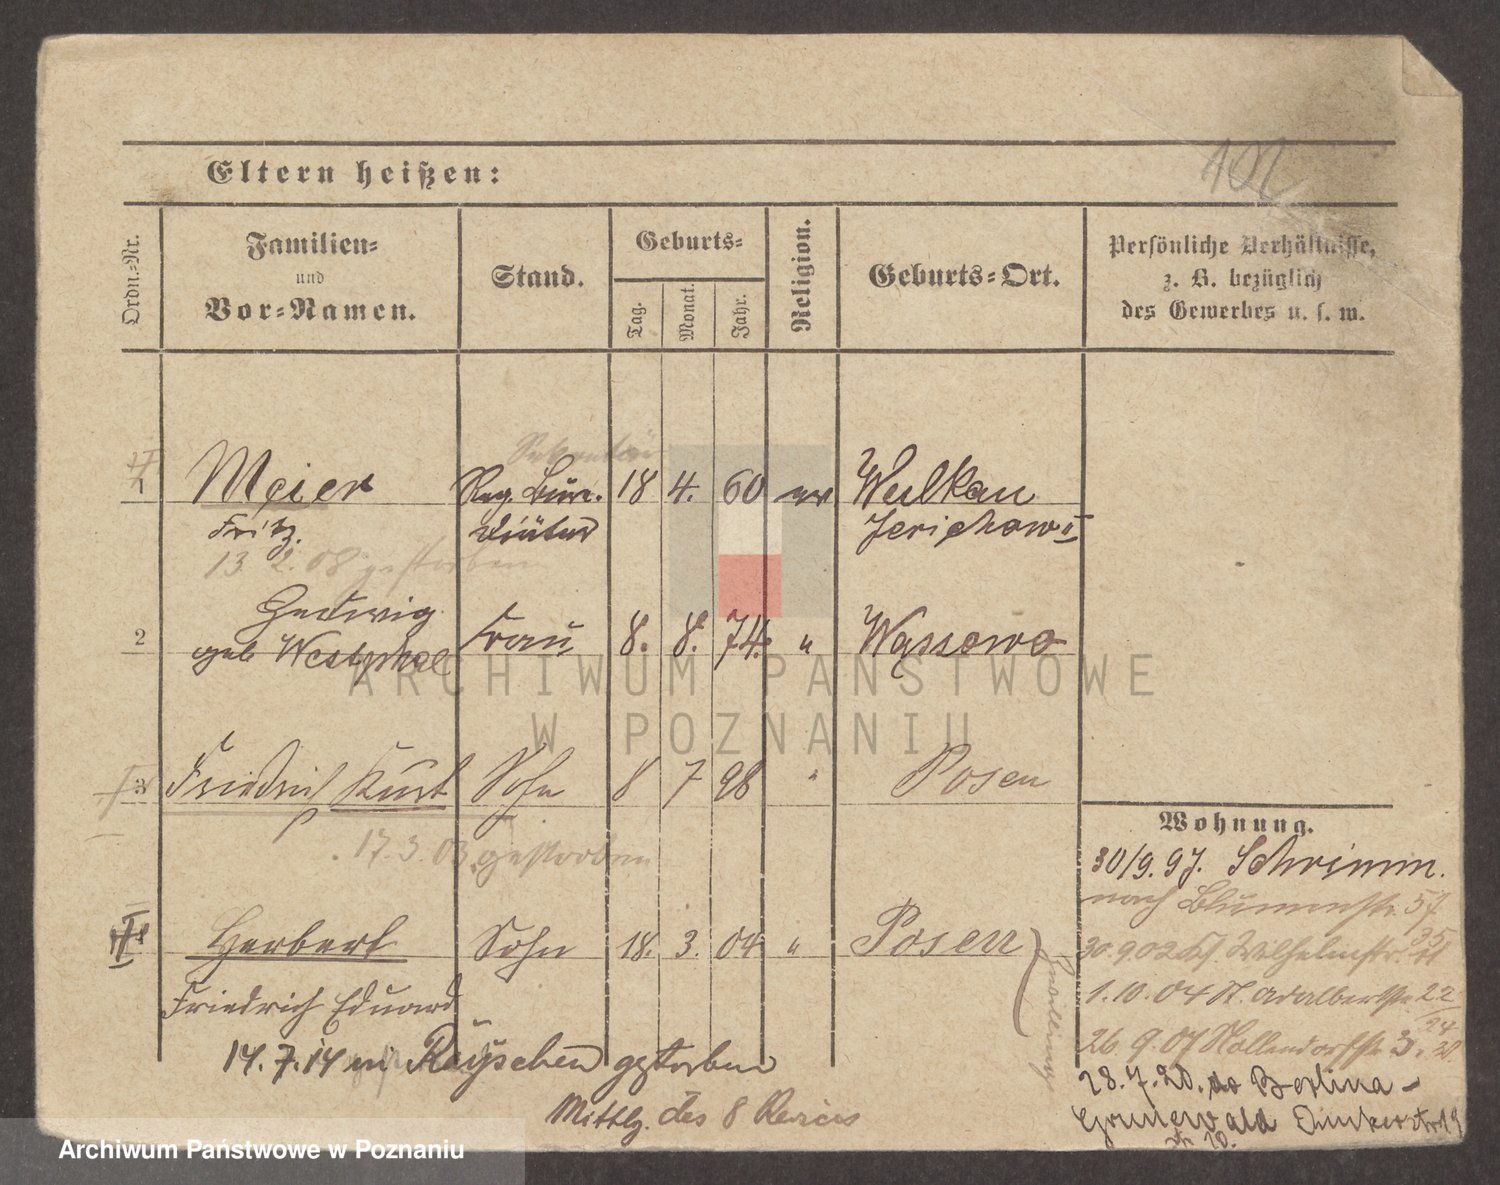 102
Eltern heißen:
Ordn.-Nr.
Familien-
und
Vor-Namen.
Stand.
Geburts-
Tag.
Monat.
Jahr.
Religion.
Geburts-Ort.
Persönliche Verhältnisse,
z. B. bezüglich
des Gewerbes u. s. w.
Sekretär
1 Meier Reg. Büro. 18 4. 60 ev Wulkau
Fritz. Diätar Jerichow II
13 2. 08 gestorben
Hedwig
2 geb Westphal Frau 8. 8. 74. " Wąssowo
3 Friedrich Kurt Sohn 8 7 98 " Posen
17. 3. 03 gestorben
Herbert Sohn 18. 3. 04 " Posen
Friedrich Eduard
14. 7. 14 in gestorben
Mittlg. des 8 Reviers
Zwilling
Wohnung.
30/9. 97. Schrimm.
nach Blumenstr. 5
30. 9. 02 Wilhelmstr.
1. 10. 04 St. Adalbertstr. 22
24
26. 9. 07 Hollendorffstr 3.
28. 7. 20. do Berlina-
Grunewald
str. 10.
ARCHIWUM PAŃSTWOWE
W POZNANIU
Archiwum Państwowe w Poznaniu